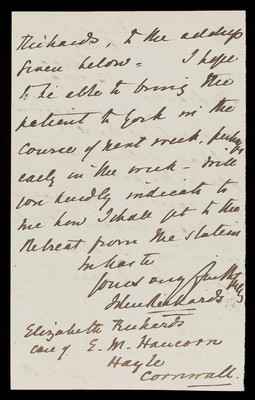 Richards, to the address
given below = I hope
to be able to bring the
patient to York in the
course of next week, perhaps
early in the week - Will
you kindly indicate to
me how I shall get to the
Retreat from the Station
In haste
yours very faithfully
Richards
Elizabeth Richards
care of E. M. Hancorn
Hayle
Cornwall.